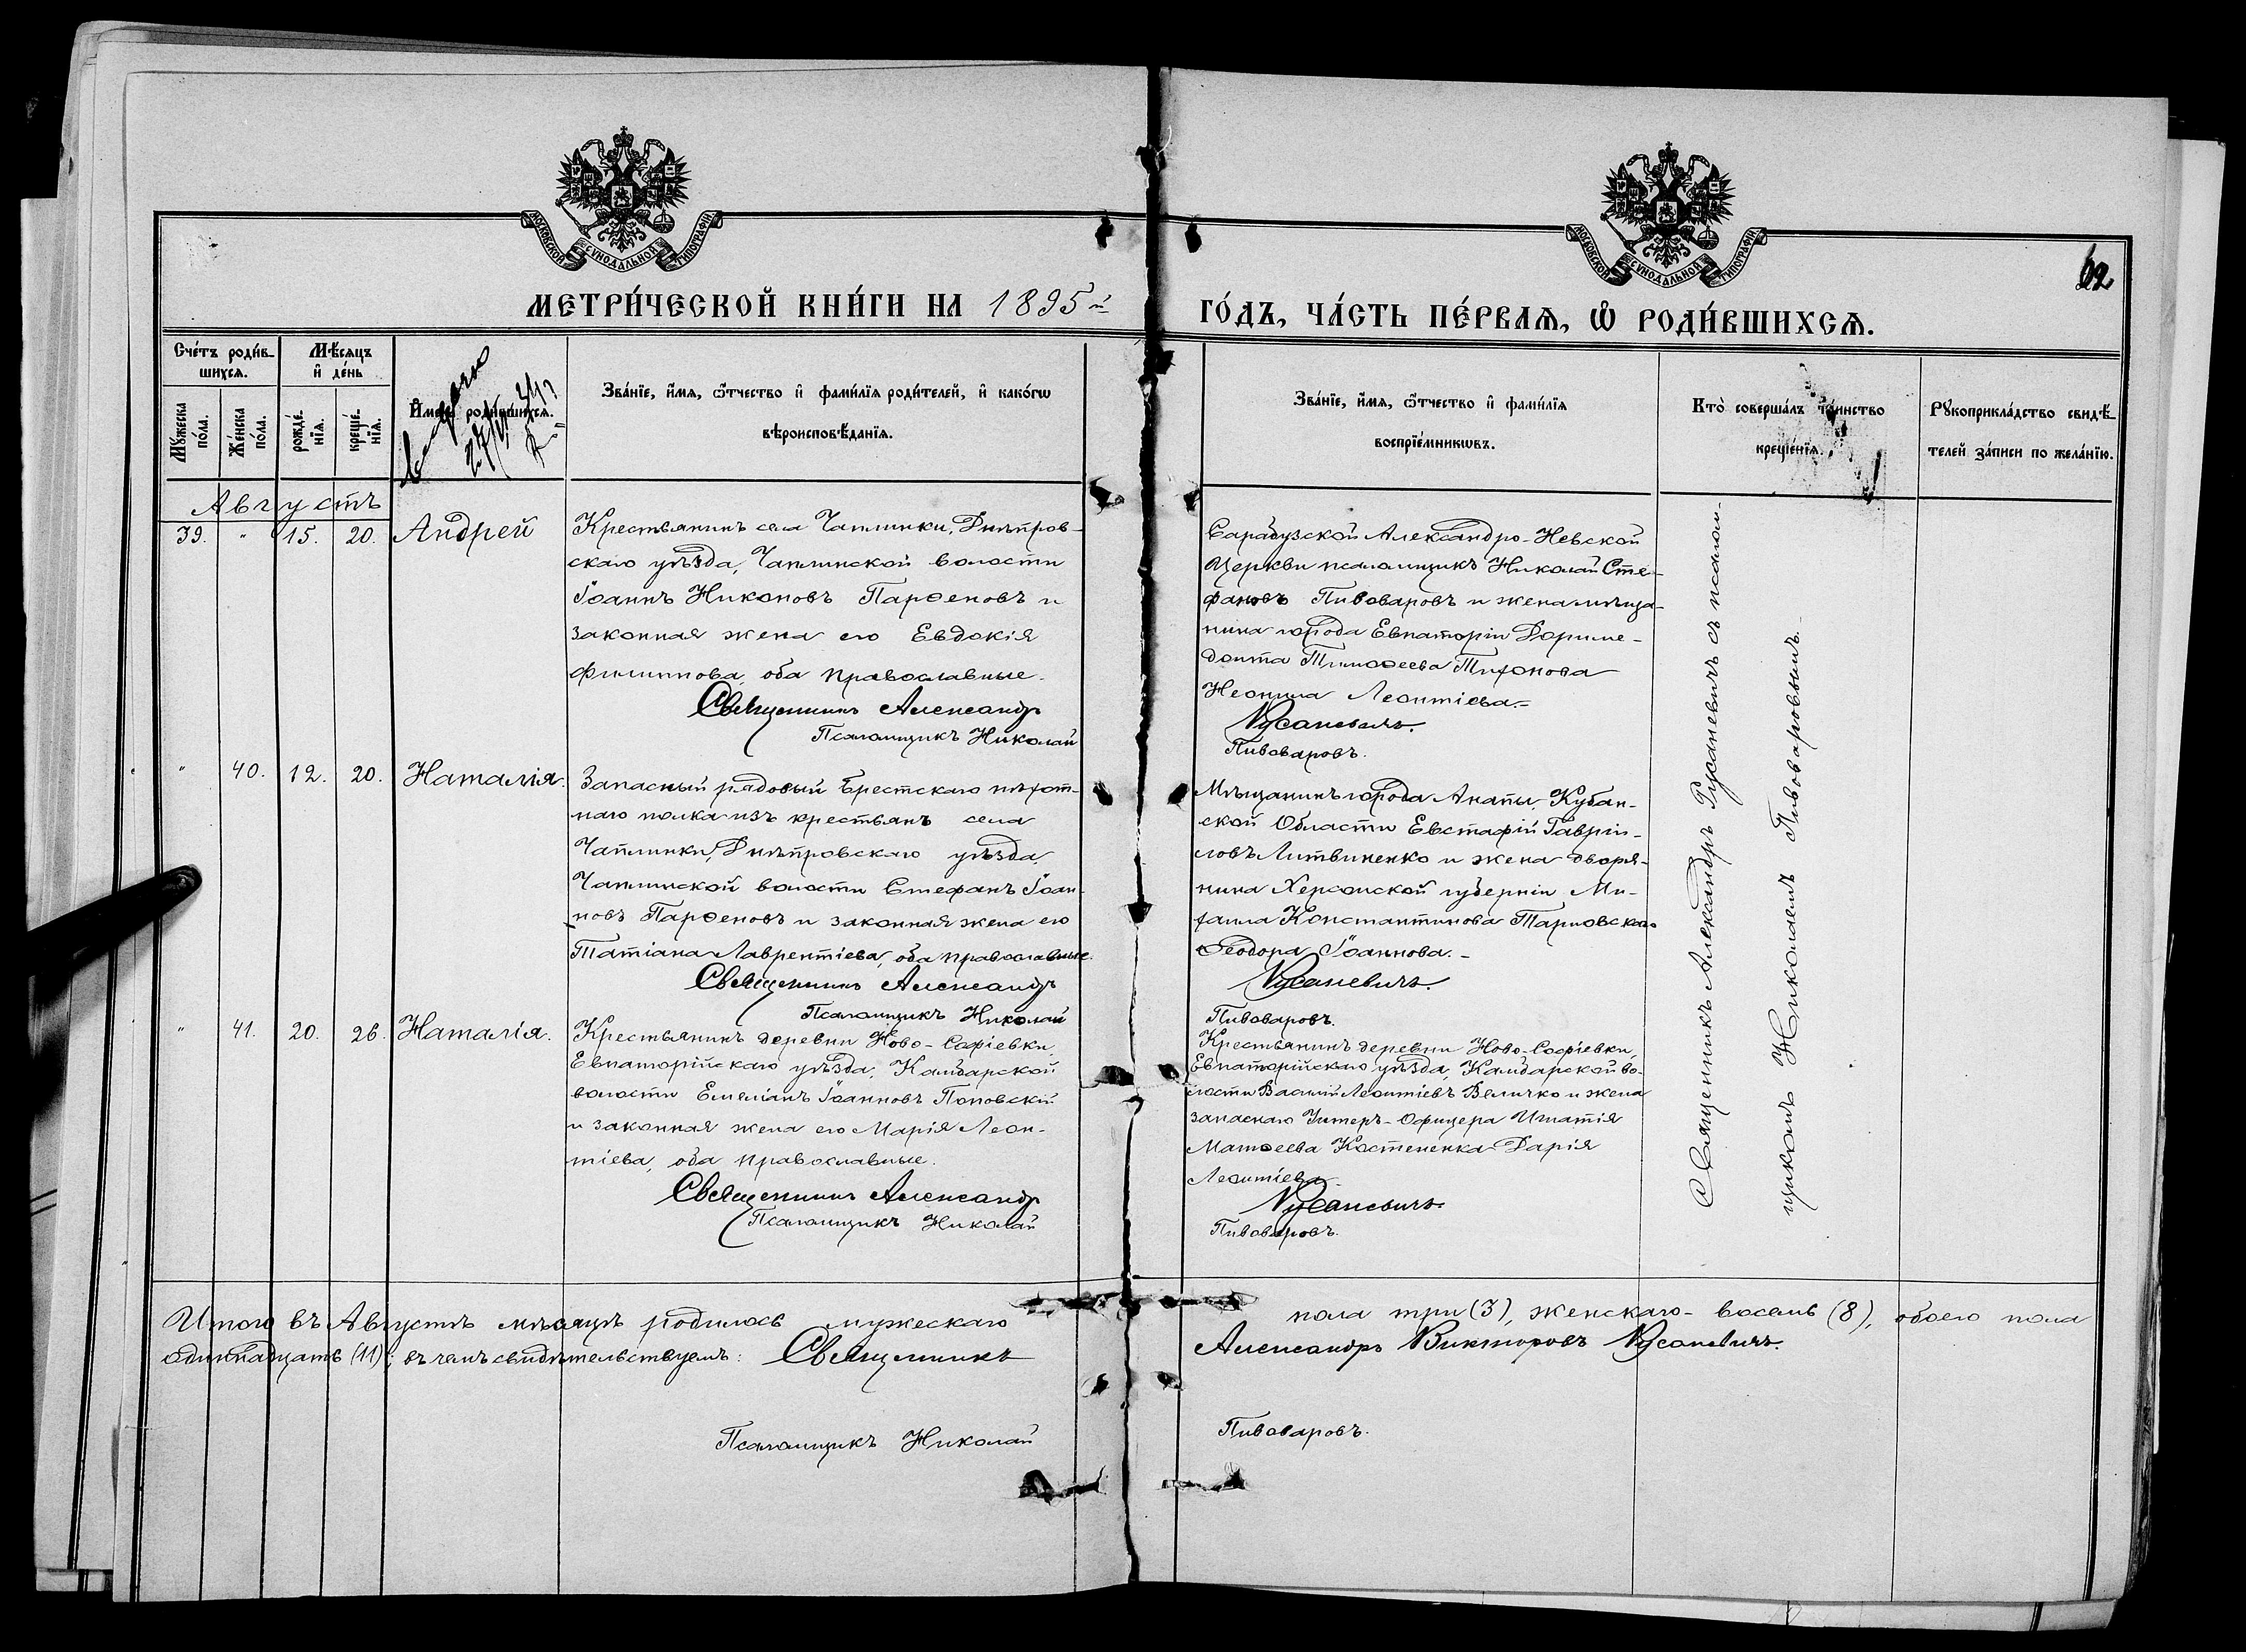 МОСКОВСКОЙ СѴНОДАЛЬНОЙ ТИПОГРАФІИ
МОСКОВСКОЙ СѴНОДАЛЬНОЙ ТИПОГРАФІИ
МЕТРИ́ЧЕСКОЙ КНИ́ГИ НА 1895й
ГО́ДЪ, ЧА́СТЬ ПЕ́РВАѦ, Ѽ РОДИ́ВШИХСѦ.
Сче́тъ роди́в-
шихсѧ.
Мѣ́сяцъ
и҆ де́нь
Мꙋ́жеска
по́ла.
Же́нска
по́ла.
рожде́-
нїѧ.
креще́-
нїѧ.
И҆мена̀ роди́вшихсѧ.
Зва́нїе, и҆́мѧ, ѻ҆́тчество и҆ фами́лїѧ роди́телей, и҆ како́гѡ
вѣроисповѣ́данїѧ.
Зва́нїе, и҆́мѧ, ѻ҆́тчество и҆ фами́лїѧ
воспрїе́мникѡвъ.
Кто̀ соверша́лъ та́инство
креще́нїѧ.
Рꙋкоприкла́дство свидѣ́-
телей за́писи по жела́нїю.
Августъ
39. " 15. 20. Андрей
Крестьянинъ села Чаплинки, Днѣпров-
скаго уѣзда, Чаплинской волости
Іоаннъ Никоновъ Парѳеновъ и
законная жена его Евдокія
Филиппова, оба православные.
Священникъ Александръ
Псаломщикъ Николай
Сарабузской Александро-Невской
Церкви псаломщикъ Николай Сте-
фановъ Пивоваровъ и жена мѣща-
нина города Евпаторіи Дориме-
донта Тимоѳеева Тихонова
Неонила Леонтіева.-
Русаневичъ.
Пивоваровъ.
" 40. 12. 20. Наталія.
Запасный рядовый Брестскаго пѣхот-
наго полка изъ крестьянъ села
Чаплинки, Днѣпровскаго уѣзда,
Чаплинской волости Стефанъ Іоан-
новъ Парѳеновъ и законная жена его
Татіана Лаврентіева, оба православные.
Священникъ Александръ
Псаломщикъ Николай
Мѣщанинъ города Анапы, Кубан-
ской Области Евстафій Гавріи-
ловъ Литвиненко и жена дворя-
нина Херсонской губерніи Ми-
хаила Константинова Тарновскаго
Ѳеодора Іоаннова.-
Русаневичъ.
Пивоваровъ.
" 41. 20. 26. Наталія.
Крестьянинъ деревни Ново-Софіевки,
Евпаторійскаго уѣзда, Камбарской
волости Емеліанъ Іоанновъ Поповскій
и законная жена его Марія Леон-
тіева, оба православные.
Священникъ Александръ
Псаломщикъ Николай
Крестьянинъ деревни Ново-Софіевки,
Евпаторійскаго уѣзда, Камбарской во-
лости Василій Леонтіевъ Величко и жена
запаснаго Унтеръ-Офицера Игнатія
Матѳеева Костененка Дарія
Леонтіева.
Русаневичъ.
Пивоваровъ.
Священникъ Александръ Русаневичъ съ псалом-
щикомъ Николаемъ Пивоваровымъ.
Итого въ Августѣ мѣсяцѣ родилось мужескаго
пола три (3), женскаго - восемь (8), обоего пола
одиннадцать (11); въ чемъ свидѣтельствуемъ: Священникъ
Александръ Викторовъ Русаневичъ.
Псаломщикъ Николай
Пивоваровъ.